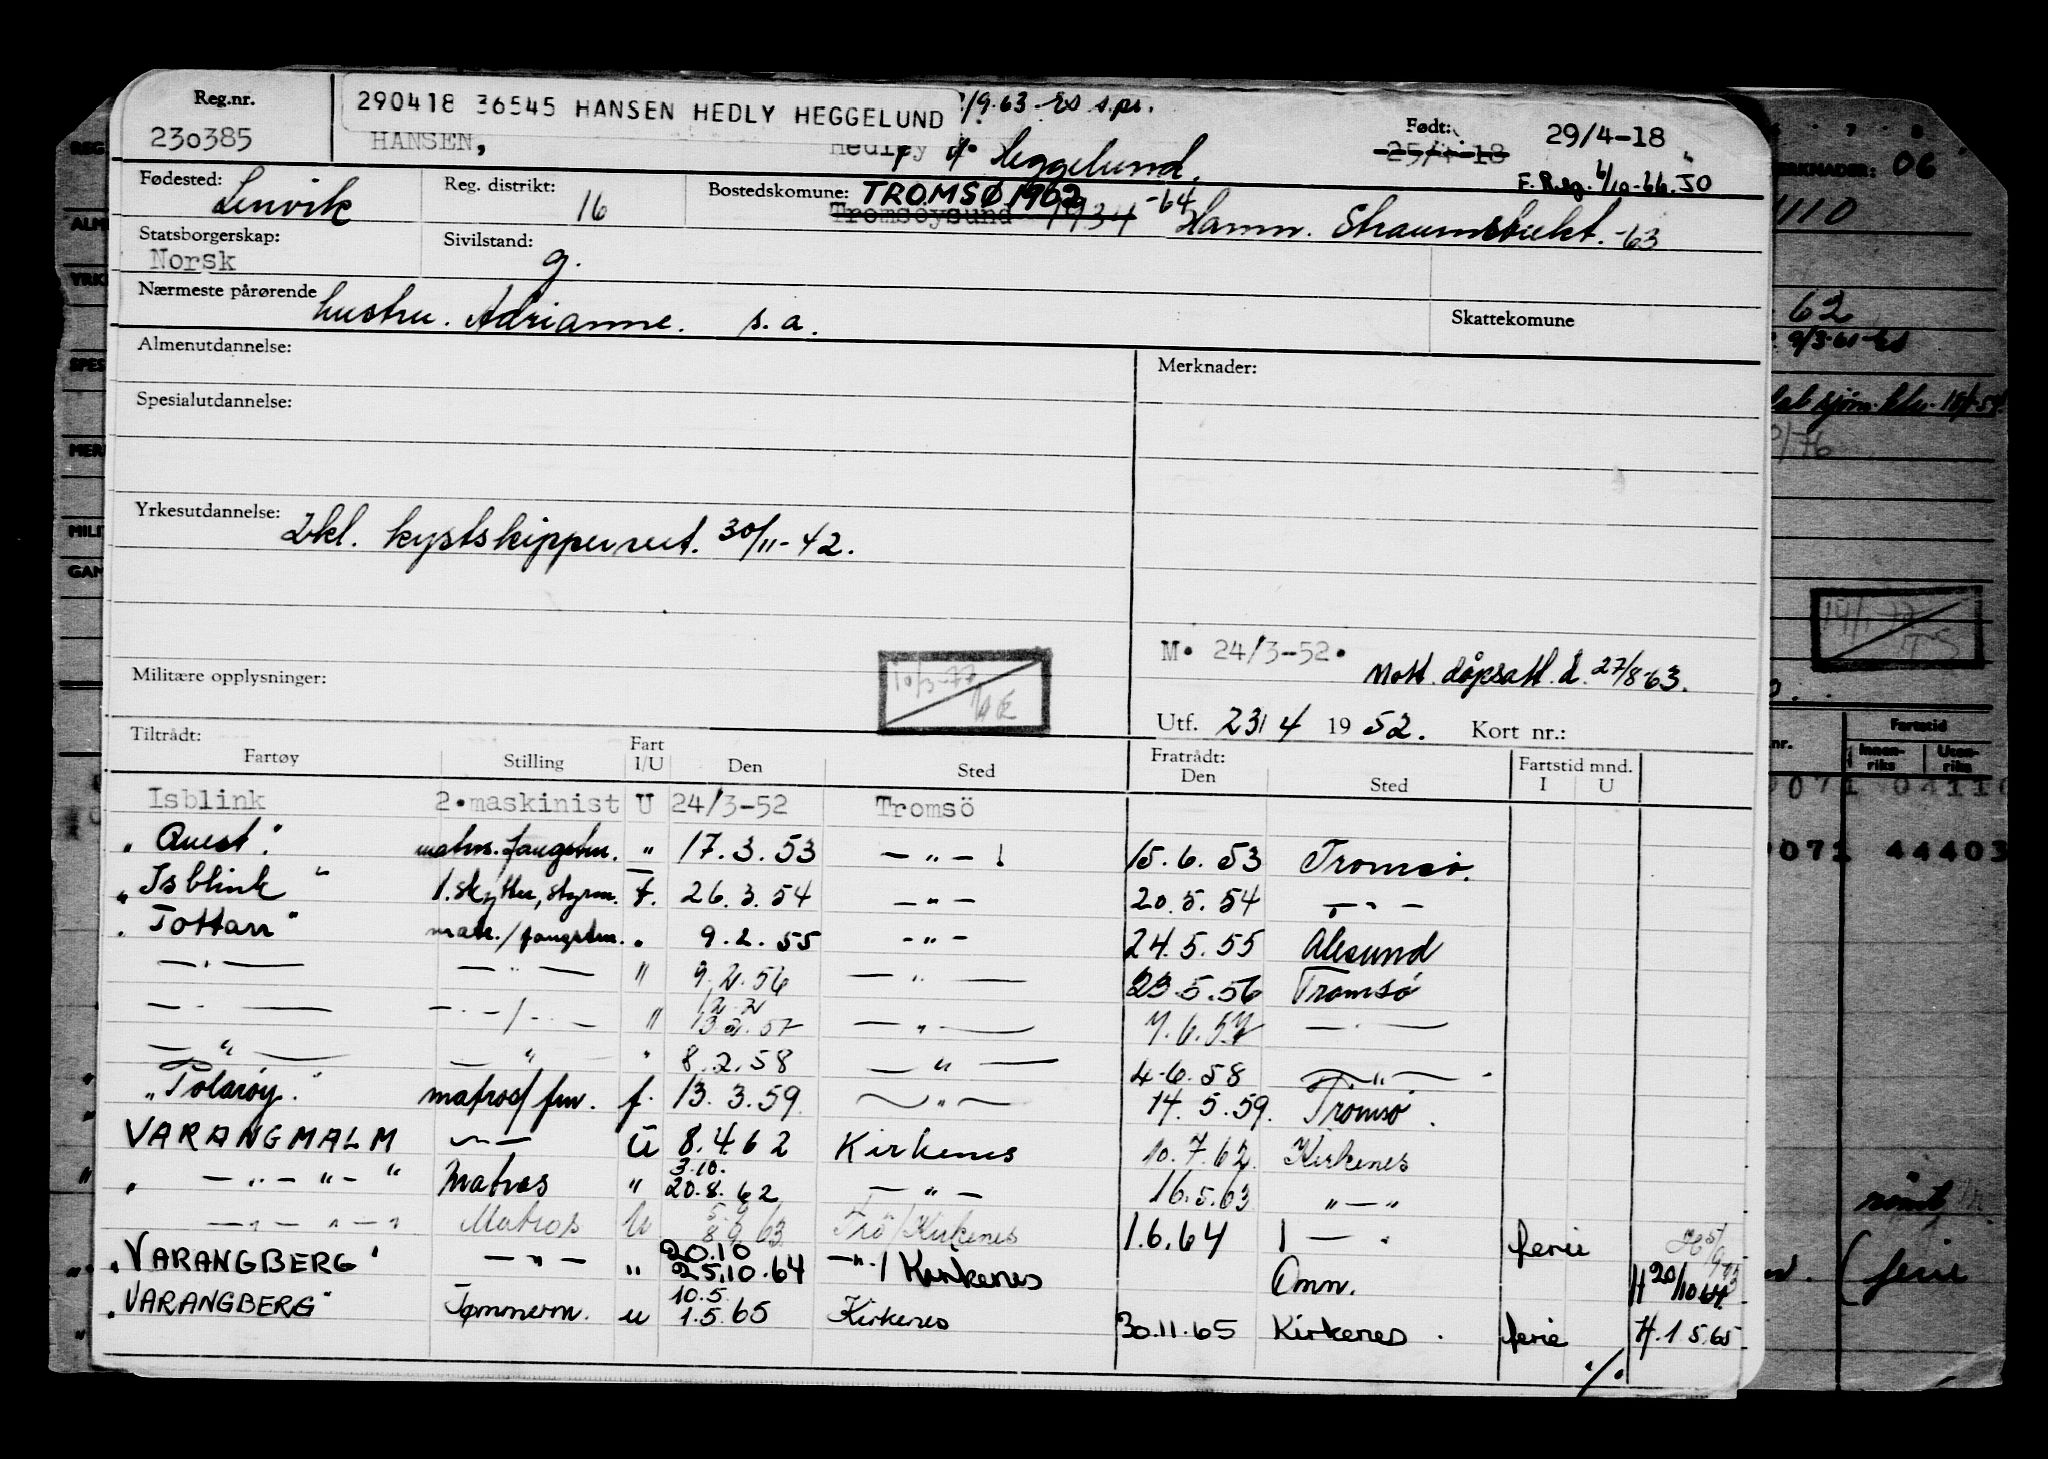 Reg.nr.
230385
290418 36545 HANSEN HEDLY HEGGELUND
/9.63
HANSEN,
Heggelund.
Født:
25/4-18
29/4-18
F. Reg. 6/10-66. JO
Fødested: Lenvik
Reg. distrikt: 16
Bostedskommune: TROMSØ 1902 -64
Tromsøysund 1934
Hamn. Straumsbukt. -63
Statsborgerskap: Norsk
Sivilstand: g.
Nærmeste pårørende hustru. Adrianne. s. a.
Skattekomune
Almenutdannelse:
Merknader:
Spesialutdannelse:
Yrkesutdannelse: 2kl. kystskippersert. 30/11-42.
M. 24/3-52.
Mott. dåpsatt. d. 27/8-63.
Militære opplysninger:
10/3-77
Utf. 23/4 1952. Kort nr.:
Tiltrådt:
Fratrådt:
Fartøy Stilling Fart I/U Den Sted Den Sted Fartstid mnd. I U
Isblink 2.maskinist U 24/3-52 Tromsö
"Quest" matrs. fangstm. " 17.3.53 — " — 15.6.53 Tromsø.
"Isblink" 1. skytter, styrm. f. 26.3.54 — " — 20.5.54 — " —
"Tottan" matr./fangstm. " 9.2.55 — " — 24.5.55 Ålesund
— " — — " — " 9.2.56 — " — 23.5.56 Tromsø
— " — — " — " 12.2 13.2.57 — " — 7.6.57 — " —
— " — — " — " 8.2.58 — " — 4.6.58 — " —
"Polarøy" matros/fm. f. 13.3.59 — " — 14.5.59. Tromsø.
VARANGMALM — " — U 8.4.62 Kirkenes 10.7.62 Kirkenes
— " — " — " Matros " 3.10. 20.8.62 — " — 16.5.63 " — "
— " — " — " Matros U 5.9 8.9.63 Trö/Kirkenes 1.6.64 — " ferie H 5/9-63
"VARANGBERG" — " — " 20.10 25.10.64 — " — / Kirkenes Omm. H 20/10 64
"VARANGBERG" Tømmerm. u 10.5. 1.5.65 Kirkenes 30.11.65 Kirkenes. ferie H. 1 5.65
./.
REG
ALM
YRK
SPES
MER
MILI
6 7 8
MERKNADER: 06
110
62
9/3-61
/76
14/1-77
Fartstid
nr.
Innen-
riks
Uten-
riks
0071 04110
0071 44403
(ferie